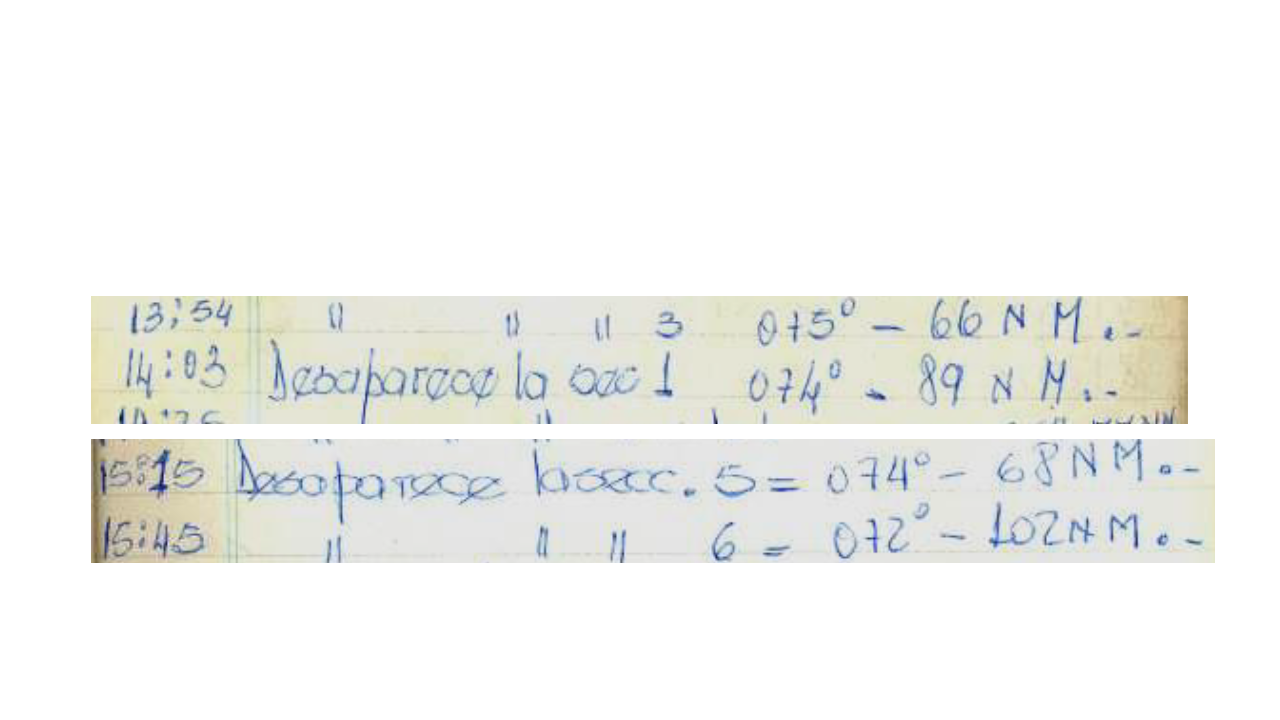 13:54 " " " 3 075° - 66 NM.-
14:03 Desaparece la sec 1 074° - 89 NM.-
15:15 Desaparece la secc. 5 = 074° - 68 NM.-
15:45 " " " 6 = 072° - 102 NM.-